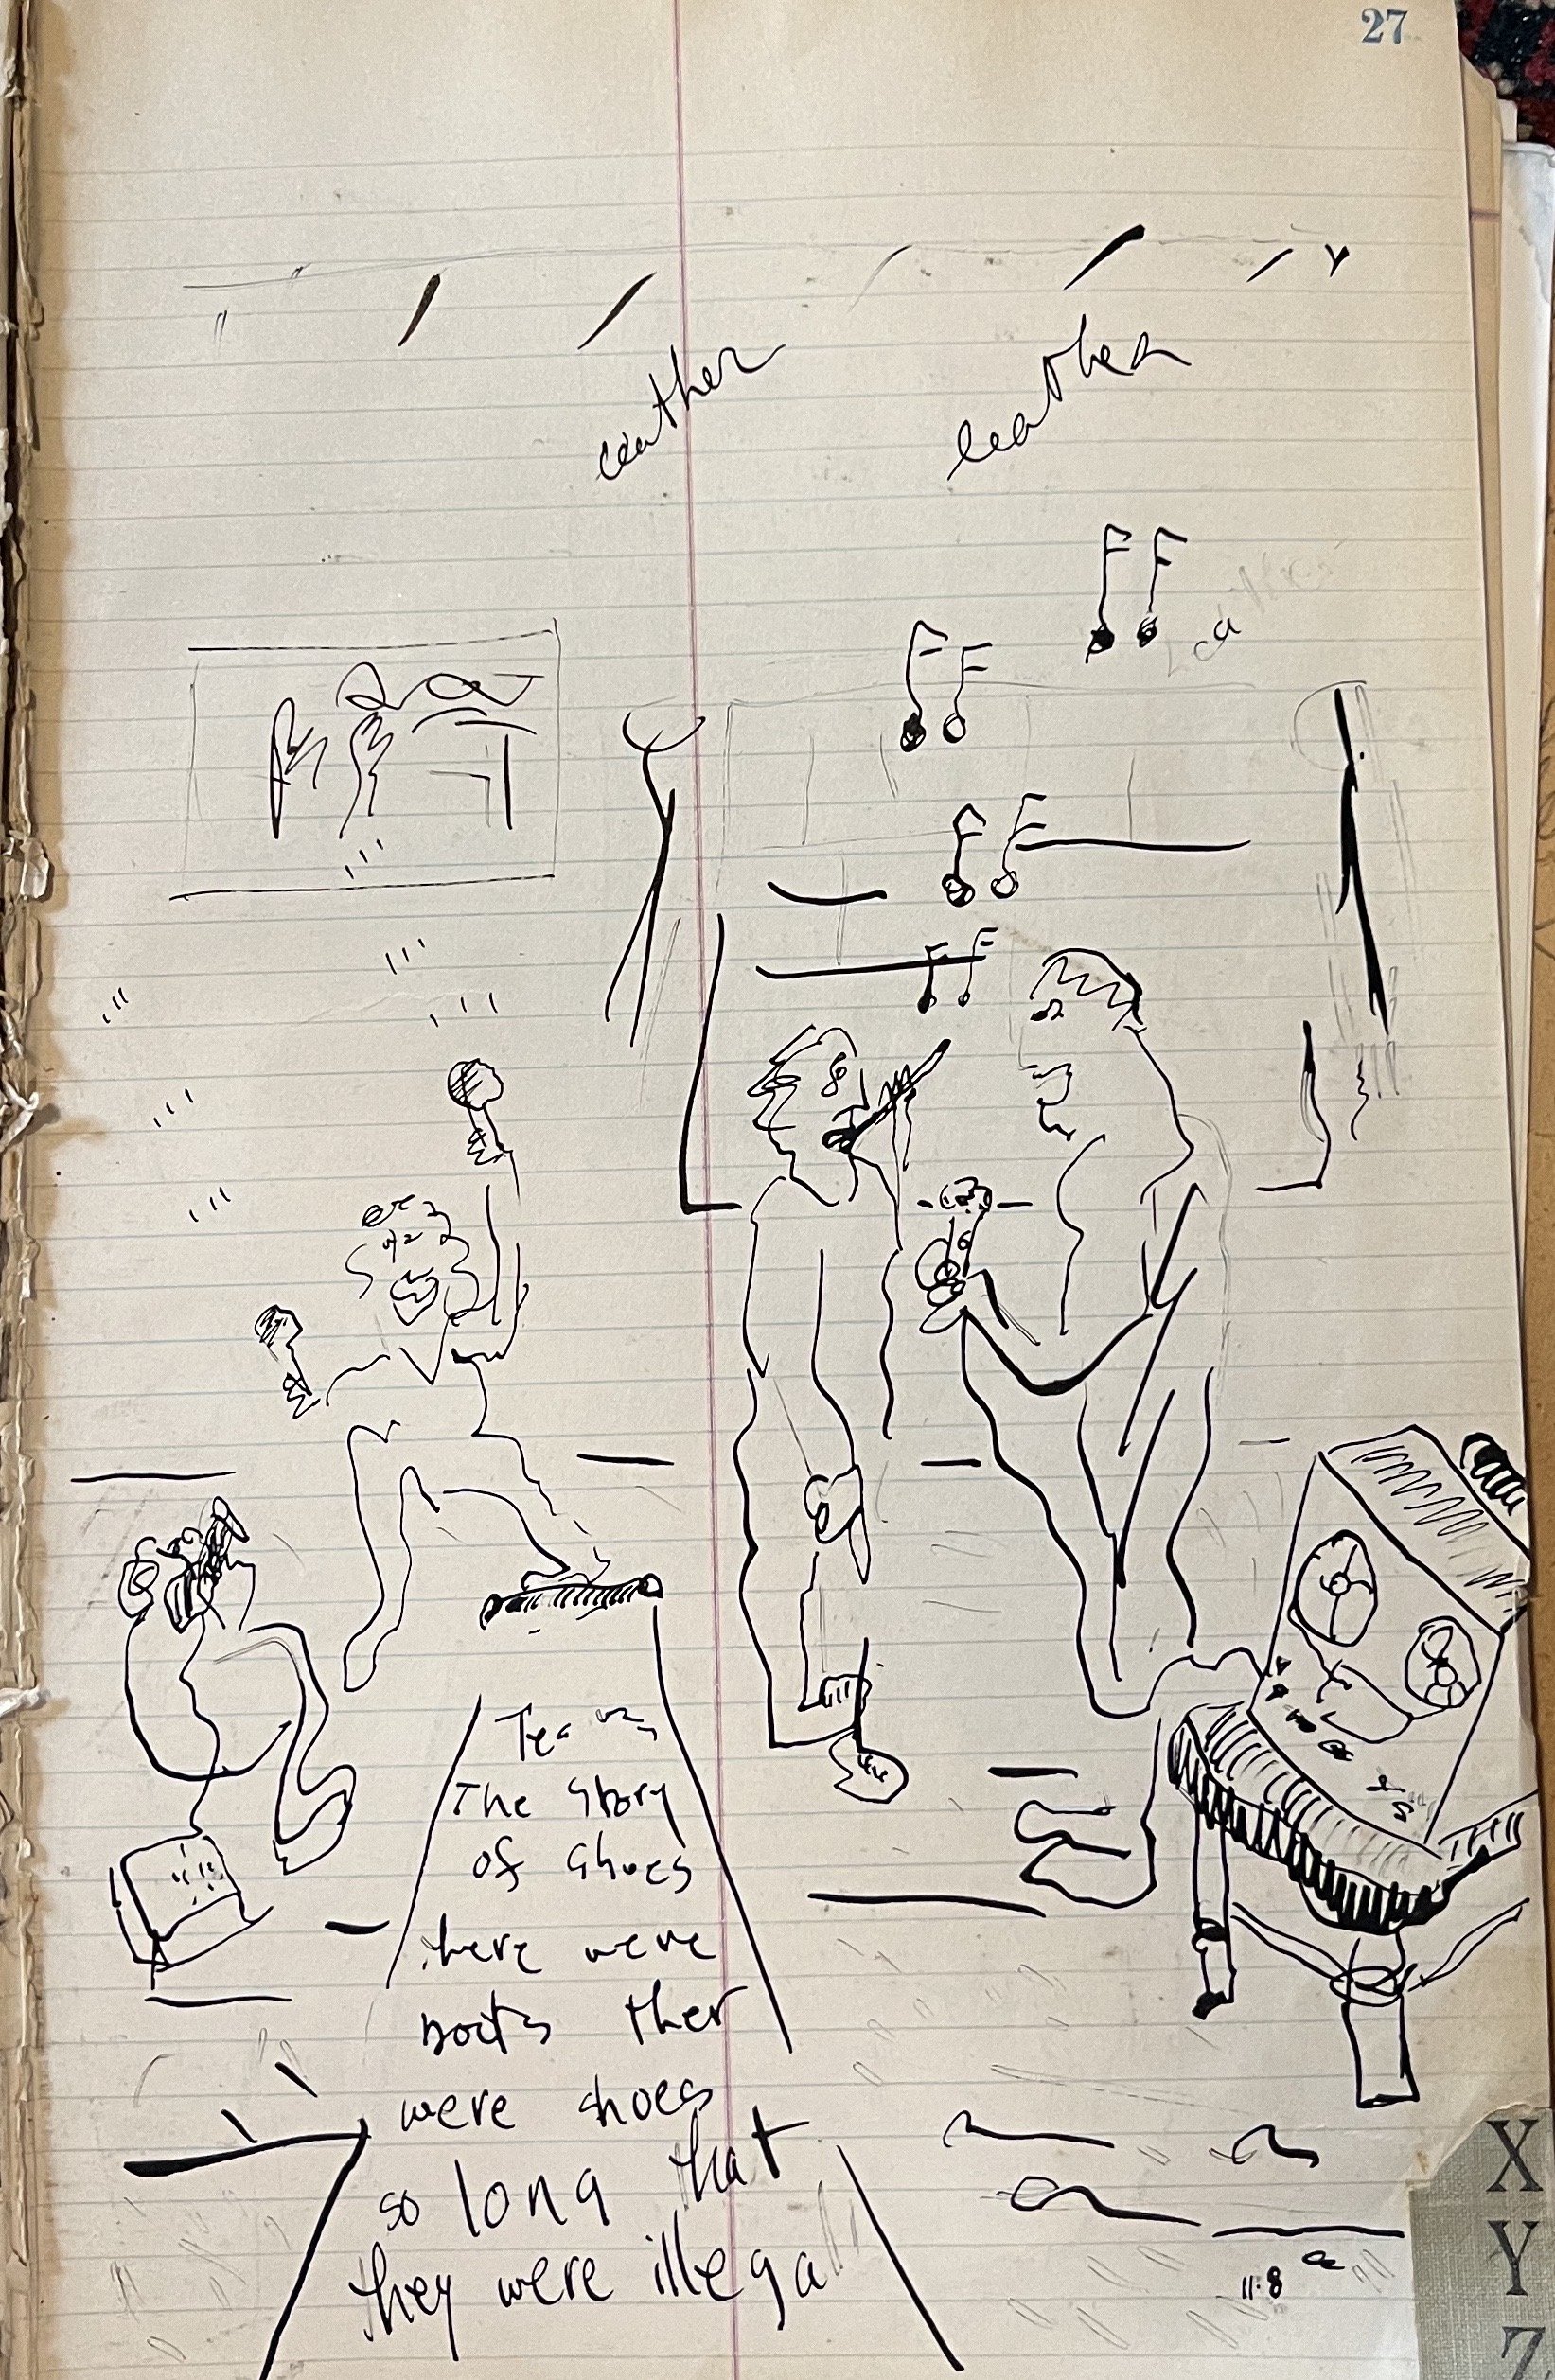 27
leather
The story
of shoes
there were
boots ther
were shoes
so long that
they were illegal
X
Y
Z